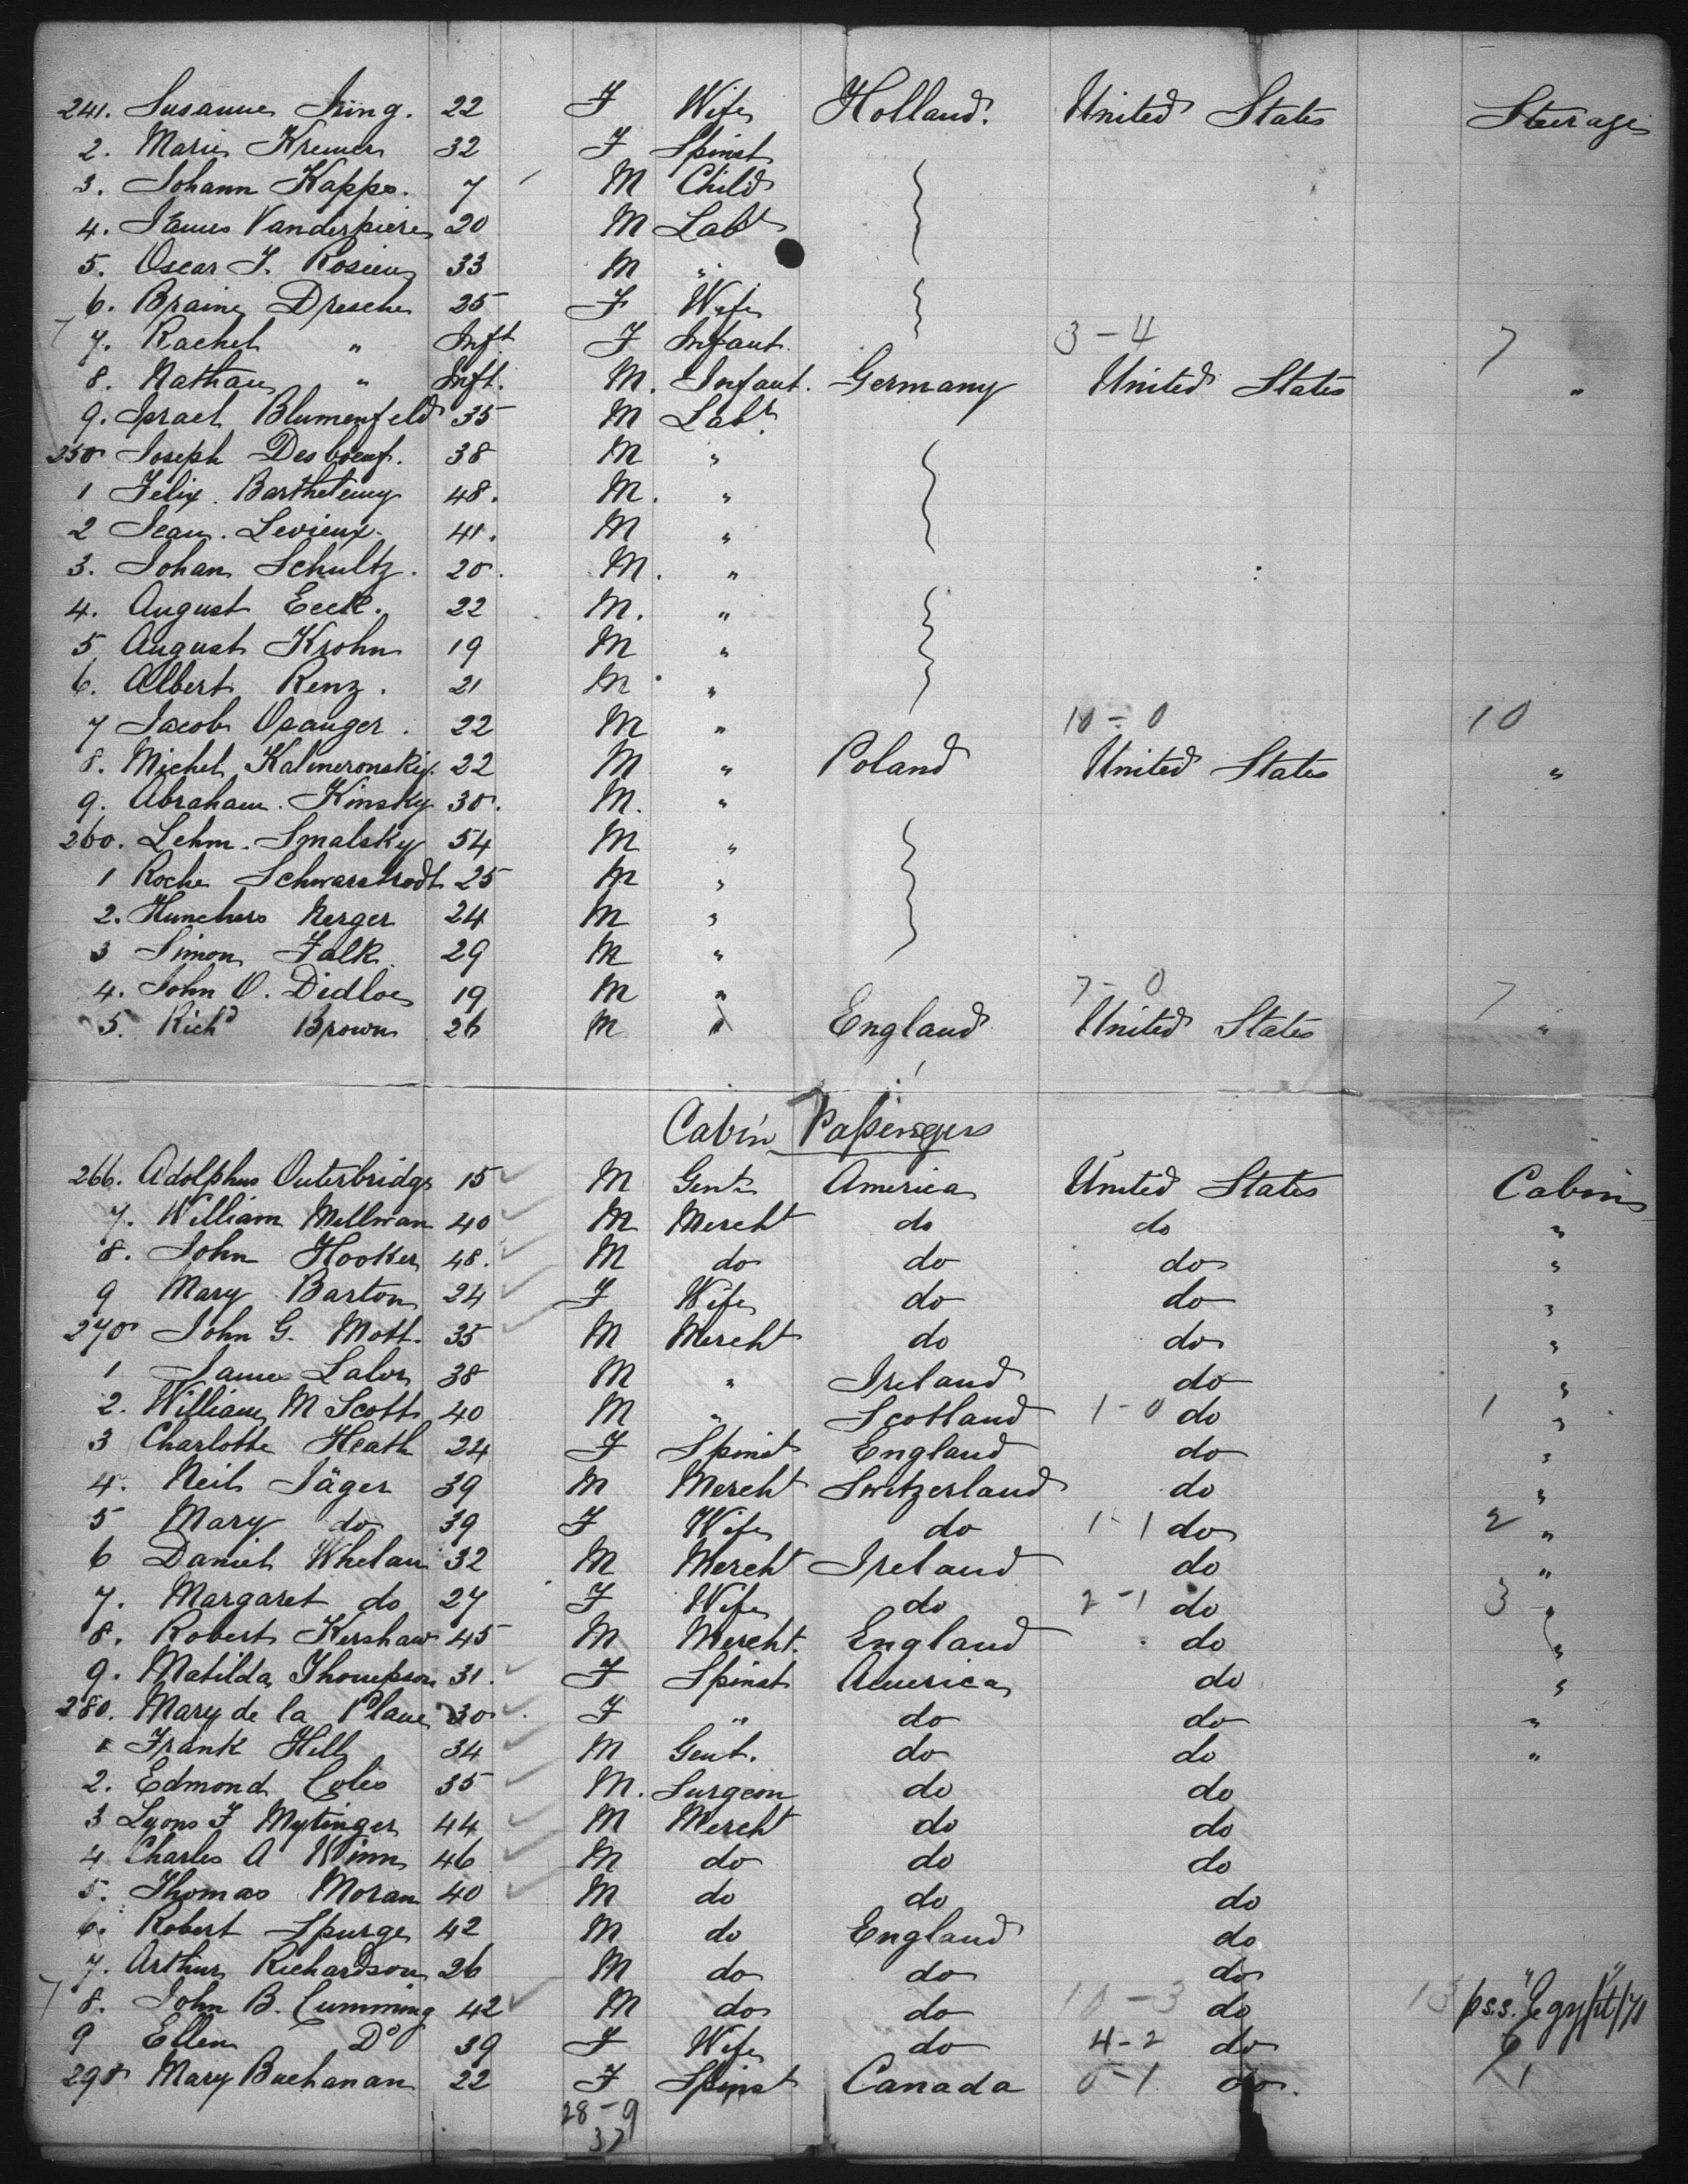 241. Susanne Jüng. 22 F Wife Holland. United States Steerage
2. Marie Kremer 32 F Spinst
3. Johann Kapps. 7 M Child
4. James Vanderpiere 20 M Labr
5. Oscar J. Rosien 33 M "
6. Braine Dresche 25 F Wife
7 7. Rachel " Inft. F Infant. 3-4 7
8. Nathan " Inft. M. Infant. Germany United States "
9. Israel Blumenfeld 35 M Labr.
250 Joseph Desboeuf. 38 M "
1 Felix Barthelemy 48. M. "
2 Jean. Levieux. 41. M "
3. Johan Schultz. 20. M. "
4. August Eeck. 22 M. "
5 August Krohn 19 M "
6. Albert Renz. 21 M "
7 Jacob Osanger. 22 M " 10-0 10
8. Michel Kalmeronsky. 22 M " Poland United States "
9. Abraham Kinsky 30. M. "
260. Lehm. Smalsky 54 M "
1 Roche Schwarstrodt 25 M "
2. Hunchers Nerger 24 M "
3 Simon Falk 29 M "
4. John O. Didloe 19 M " 7-0 7
5. Richd Brown 26 M " England United States "
Cabin Passengers
266. Adolphus Outerbridge 15 M Gent. America United States Cabin
7. William Millwan 40 M Mercht do do "
8. John Hooker 48. M do do do "
9 Mary Barton 24 F Wife do do "
270 John G. Mott. 35 M Mercht do do "
1 James Lalor 38 M " Ireland do "
2. William M Scott 40 M " Scotland 1-0 do 1 "
3 Charlotte Heath 24 F Spinst England do "
4. Neil Jäger 39 M Mercht Switzerland do "
5 Mary do 39 F Wife do 1-1 do 2 "
6 Daniel Whelan 32 M Mercht Ireland do "
7. Margaret do 27 F Wife do 2-1 do 3 "
8. Robert Kershaw 45 M Mercht. England do "
9. Matilda Thompson 31. F Spinst America do "
280. Mary de la Plane 30. F " do do "
1 Frank Hill 34 M Gent. do do "
2. Edmond Coles 35 M. Surgeon do do
3 Lyons F Mytinger 44 M Mercht do do
4 Charles A Winn 46 M do do do
5. Thomas Moran 40 M do do do
6. Robert Spurge 42 M do England do
7. Arthur Richardson 26 M do do do
7 8. John B. Cumming 42 M do do 10-3 do 13 p s.s. "Egypt"/71
9 Ellen Do 39 F Wife do 4-2 do 6
290 Mary Buchanan 22 F Spinst Canada 0-1 do. 1
28-9
37